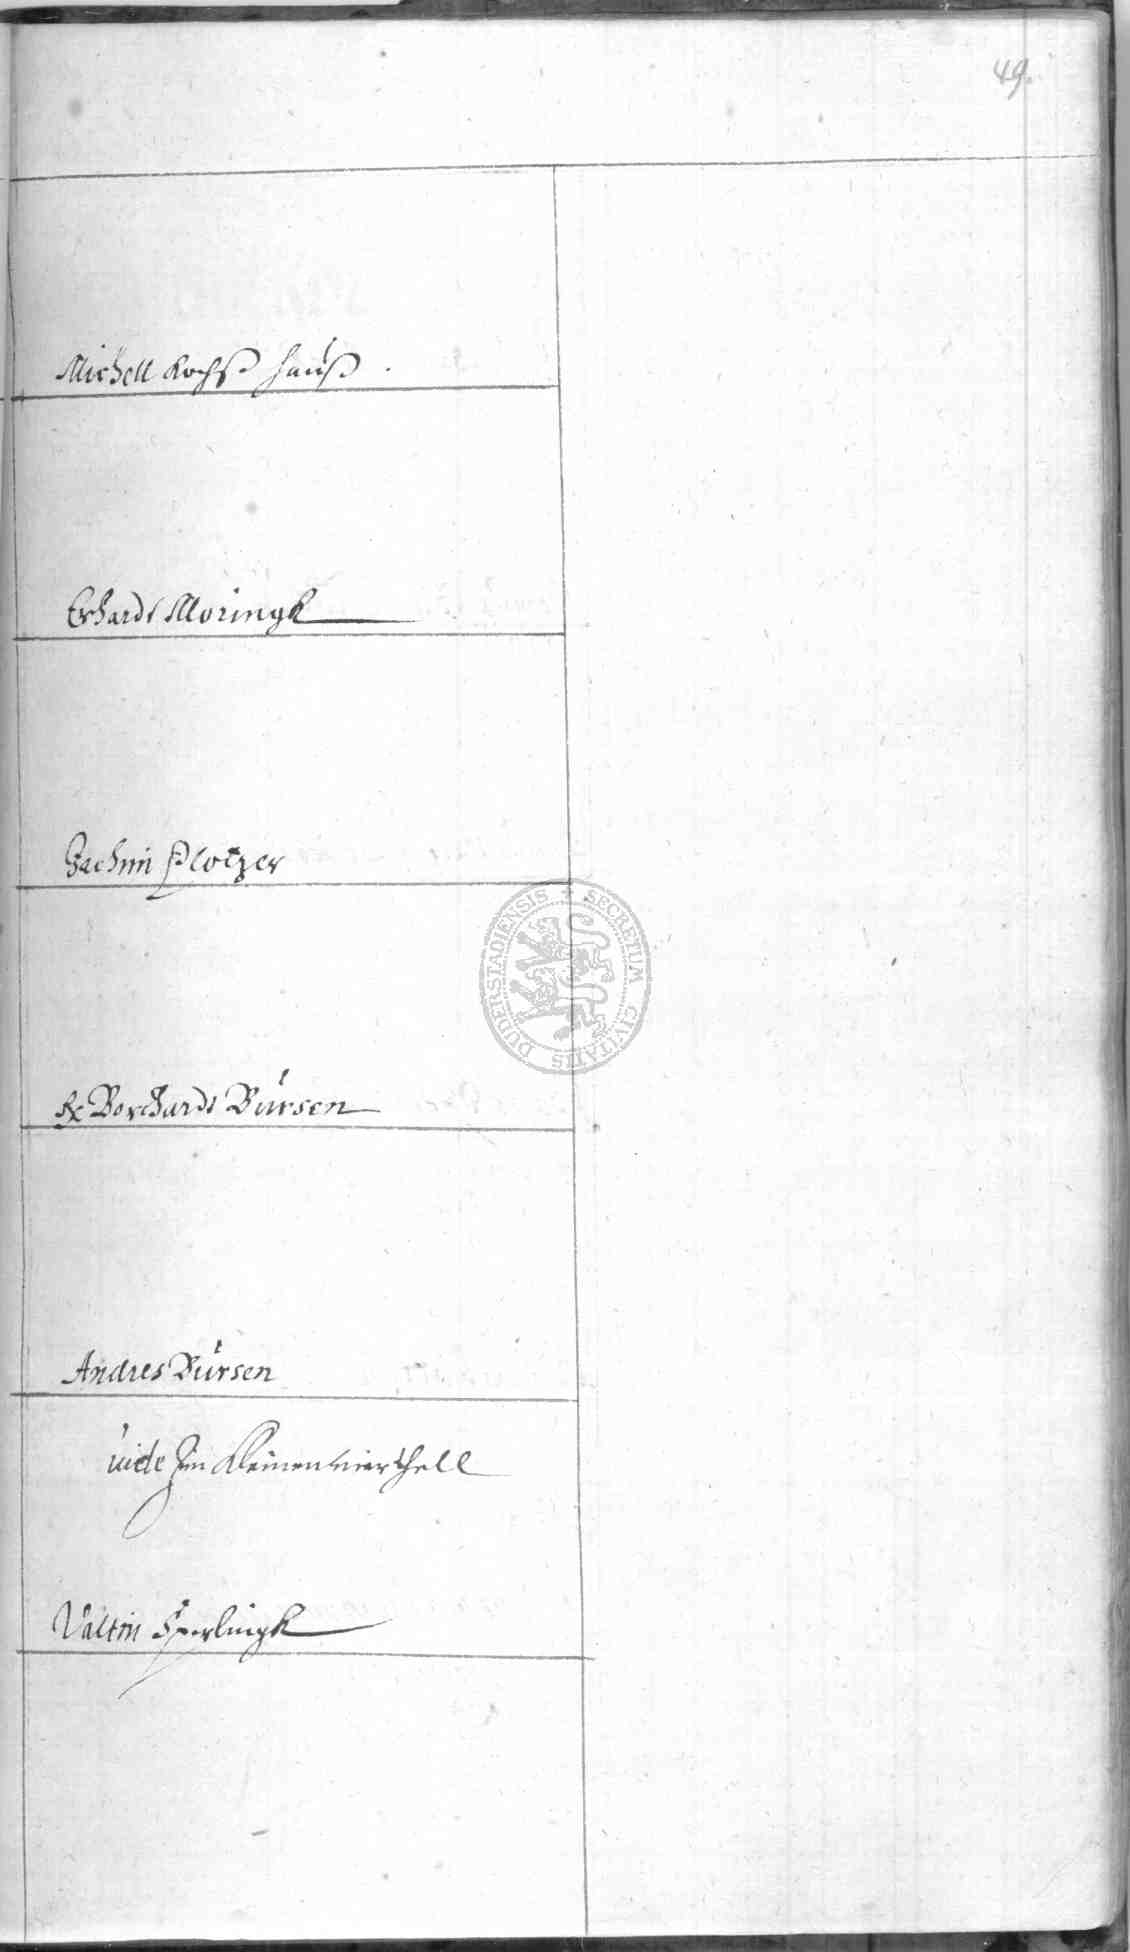 49.
Michell Kochß hauß.
Erhardt Moringk
Jachim Plotzer
Borchardt Bursen
Andres Bursen
vide Im Kleinen vierthell
Valtin Sperlingk
SECRETUM CIVITATIS DUDERSTADIENSIS